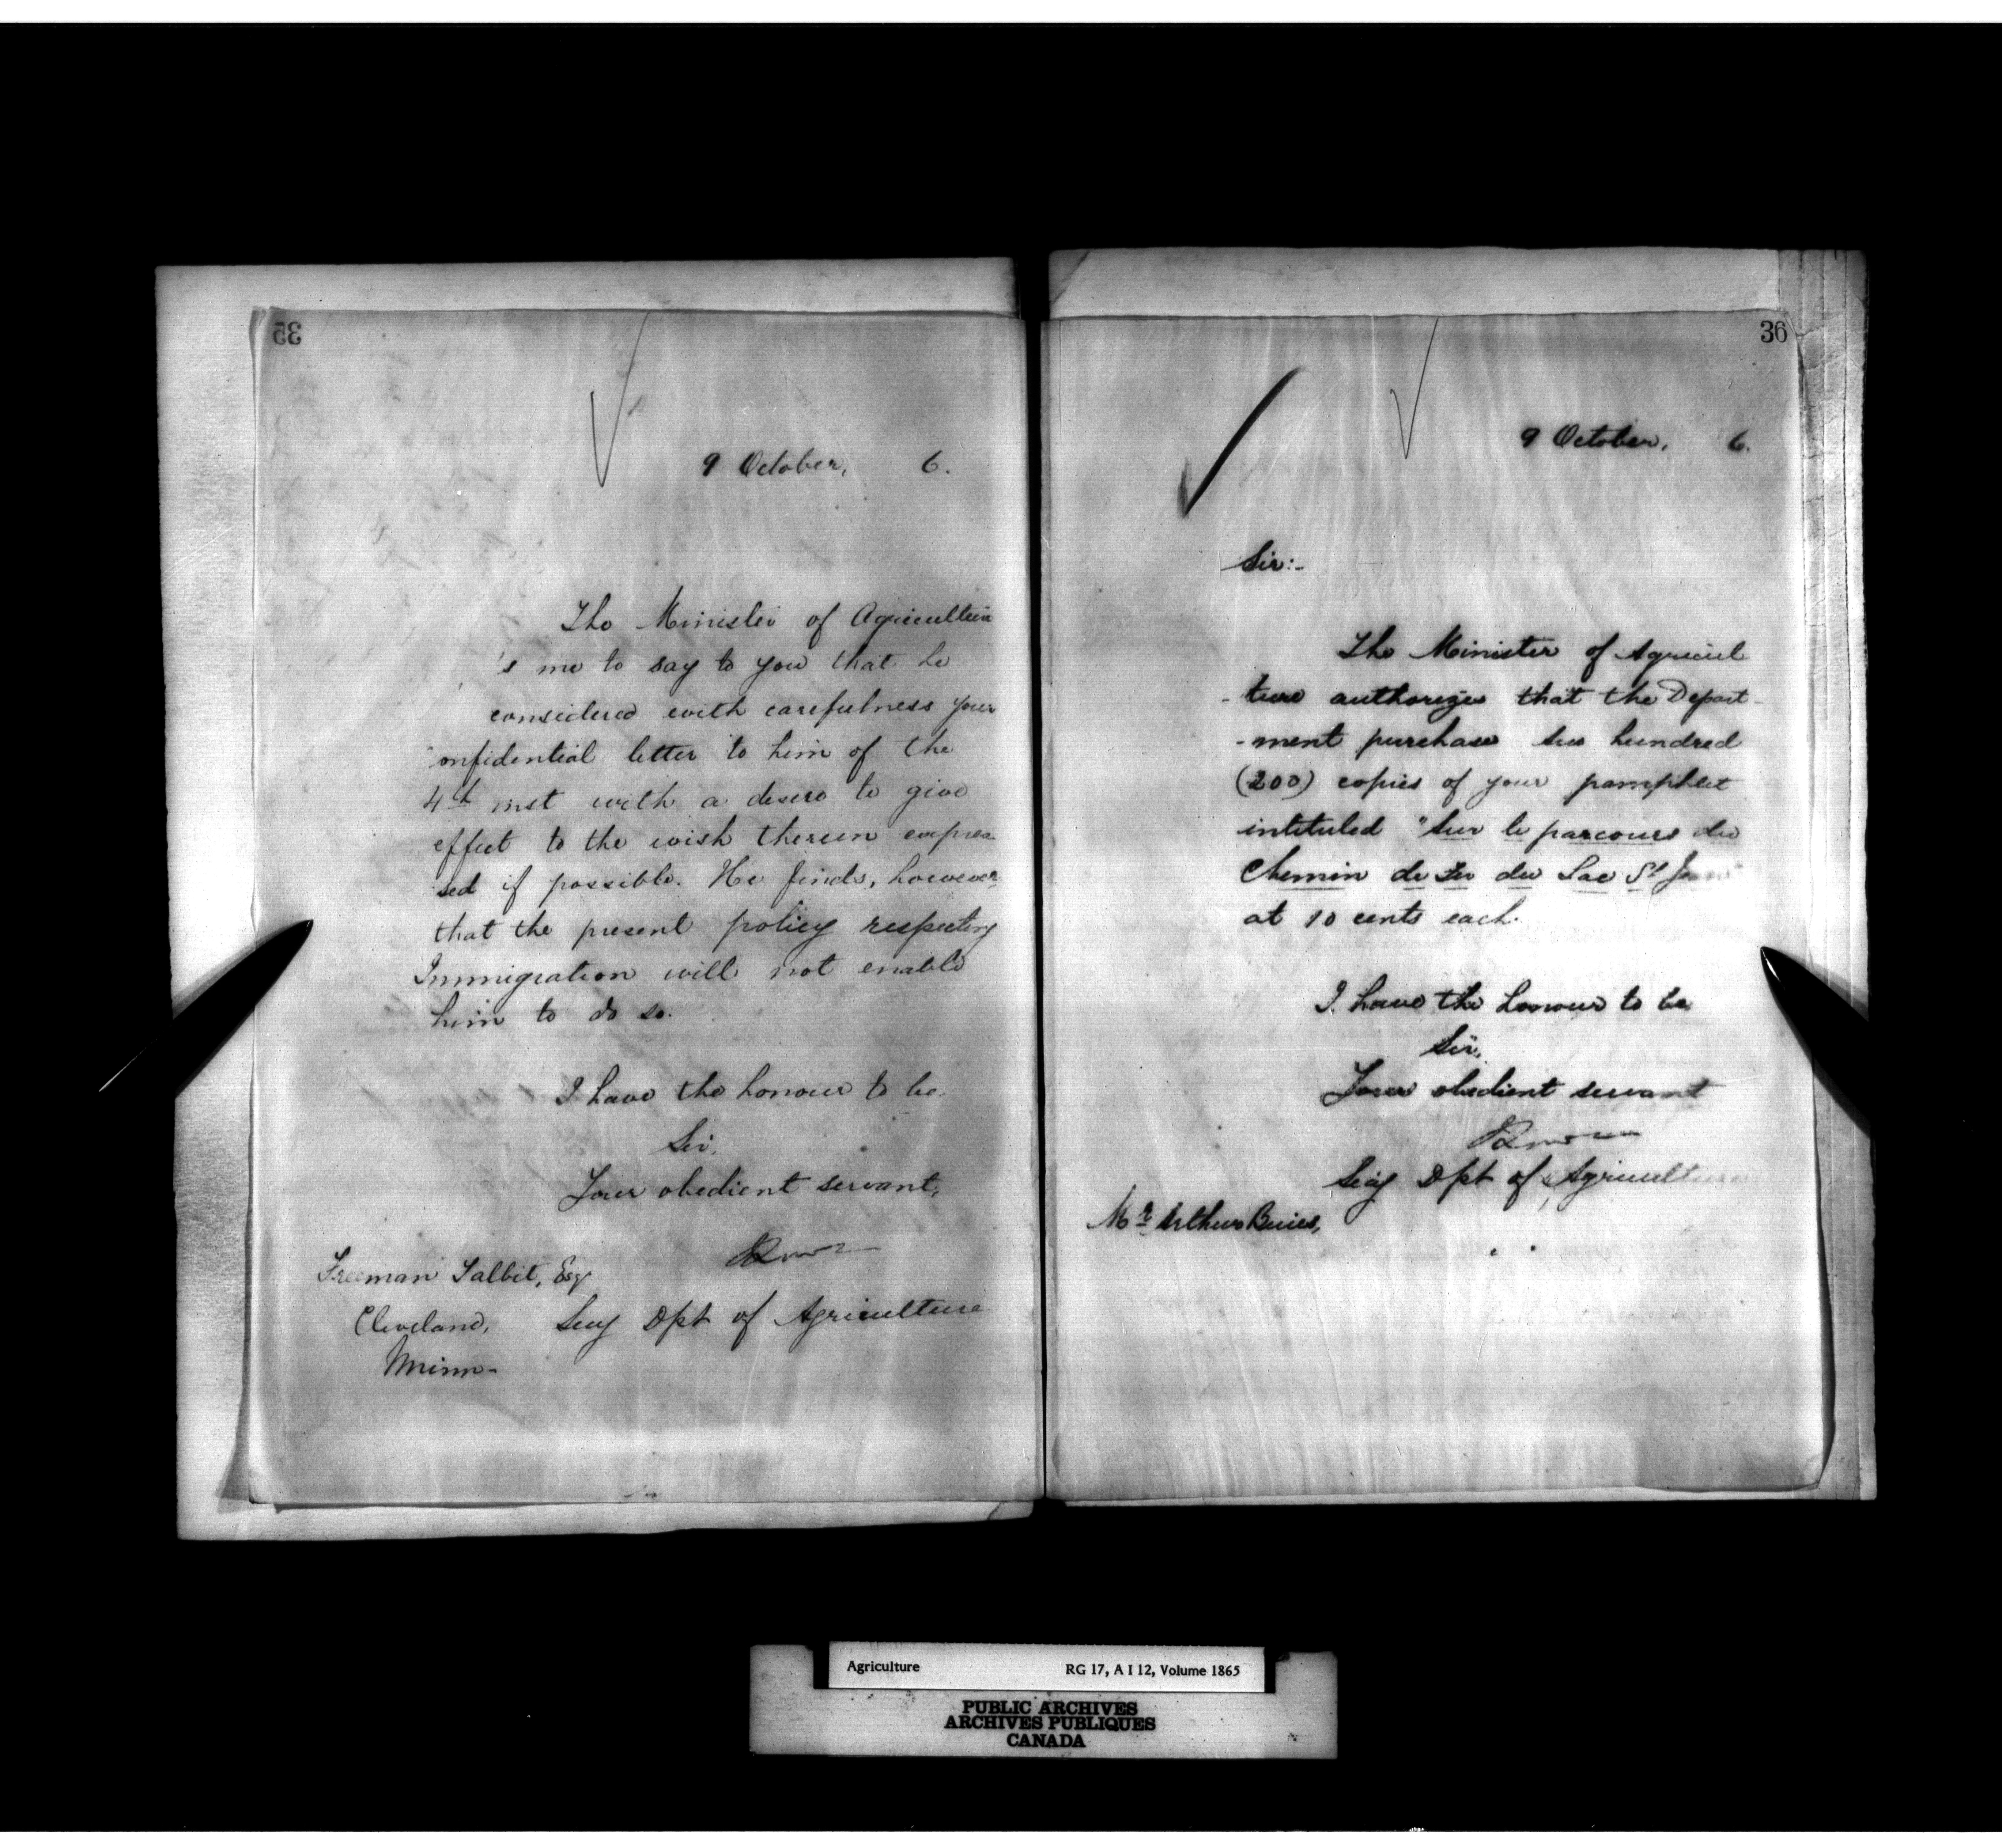 35
9 October, 6.
The Minister of Agriculture
's me to say to you that he
considered with carefulness your
onfidential letter to him of the
4th inst with a desire to give
effect to the wish therein expres
sed if possible. He finds, however,
that the present policy respecting
Immigration will not enable
him to do so.
I have the honour to be,
Sir,
Your obedient servant,
Freeman Talbit, Esq
Cleveland, Secy Dpt of Agriculture
Minn-
36
9 October, 6.
Sir:-
The Minister of Agricul
-ture authorizes that the Depart-
-ment purchase two hundred
(200) copies of your pamphlet
intituled "Sur le parcours du
Chemin de fer du Lac St Jean"
at 10 cents each.
I have the honour to be,
Sir,
Your obedient servant
Secy Dpt of Agriculture
Mr Arthur Buies,
Agriculture RG 17, A I 12, Volume 1865
PUBLIC ARCHIVES
ARCHIVES PUBLIQUES
CANADA